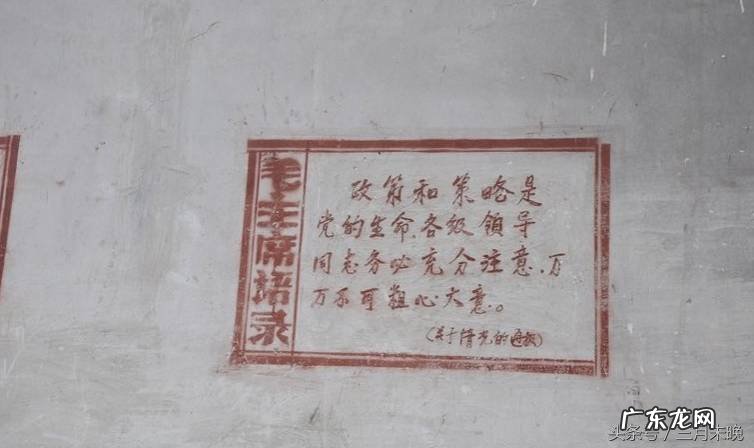 毛主席语录
政策和策略是
党的生命,各级领导
同志务必充分注意,万
万不可粗心大意。
(关于情况的通报)
广东龙网
头条号/三月末晚